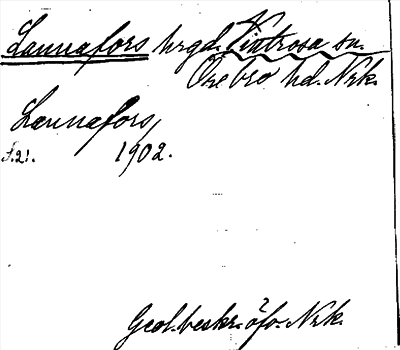 Lannafors hrgd. Vintrosa sn.
Örebro hd. Nrk.
Lannafors
s. 21. 1902.
Geol. beskr. öfv. Nrk.